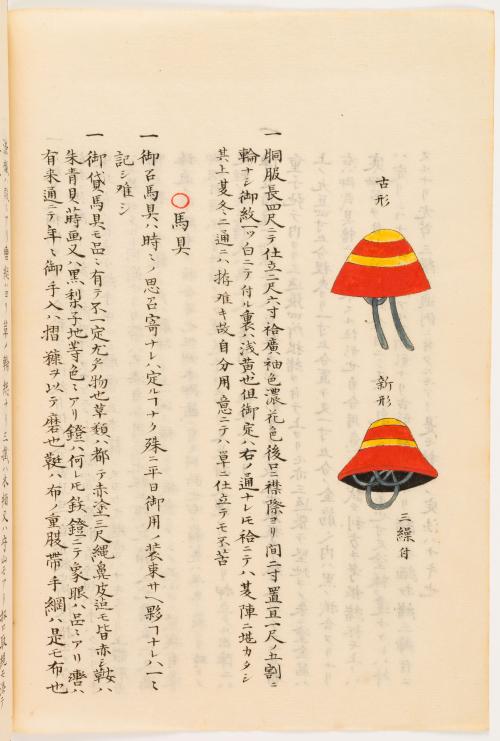 古形
新形
三繰付
一 胴服長四尺ニテ仕立二尺六寸袷廣袖色濃花色後ロニ襟際ヨリ間二寸置亘一尺ノ五割ニ
輪ナシ御紋一ッ白ニテ付ル裏ハ浅黄也但御定ハ右ノ通ナレ𪜈袷ニテハ夏陣ニ堪カタシ
其上夏冬ニ通ニハ拵難キ故自分用意ニテハ單ニ仕立テモ不苦
○馬具
一 御召馬具ハ時々ノ思召寄ナレハ定ルヿナク殊ニ平日御用ノ装束サヘ夥ヿナレハ一々
記シ難シ
一 御貸馬具モ品々有テ不一定尤多物也革類ハ都テ赤塗三尺縄鼻皮迠モ皆赤シ鞍ハ
朱青貝蒔画又ハ黒梨子地等色々アリ鐙ハ何レモ鉄鐙ニテ象眼ハ品々アリ轡ハ
有来通ニテ年々御手入ハ摺糠ヲ以テ磨也鞋ハ布ノ重股帯手綱ハ是モ布也